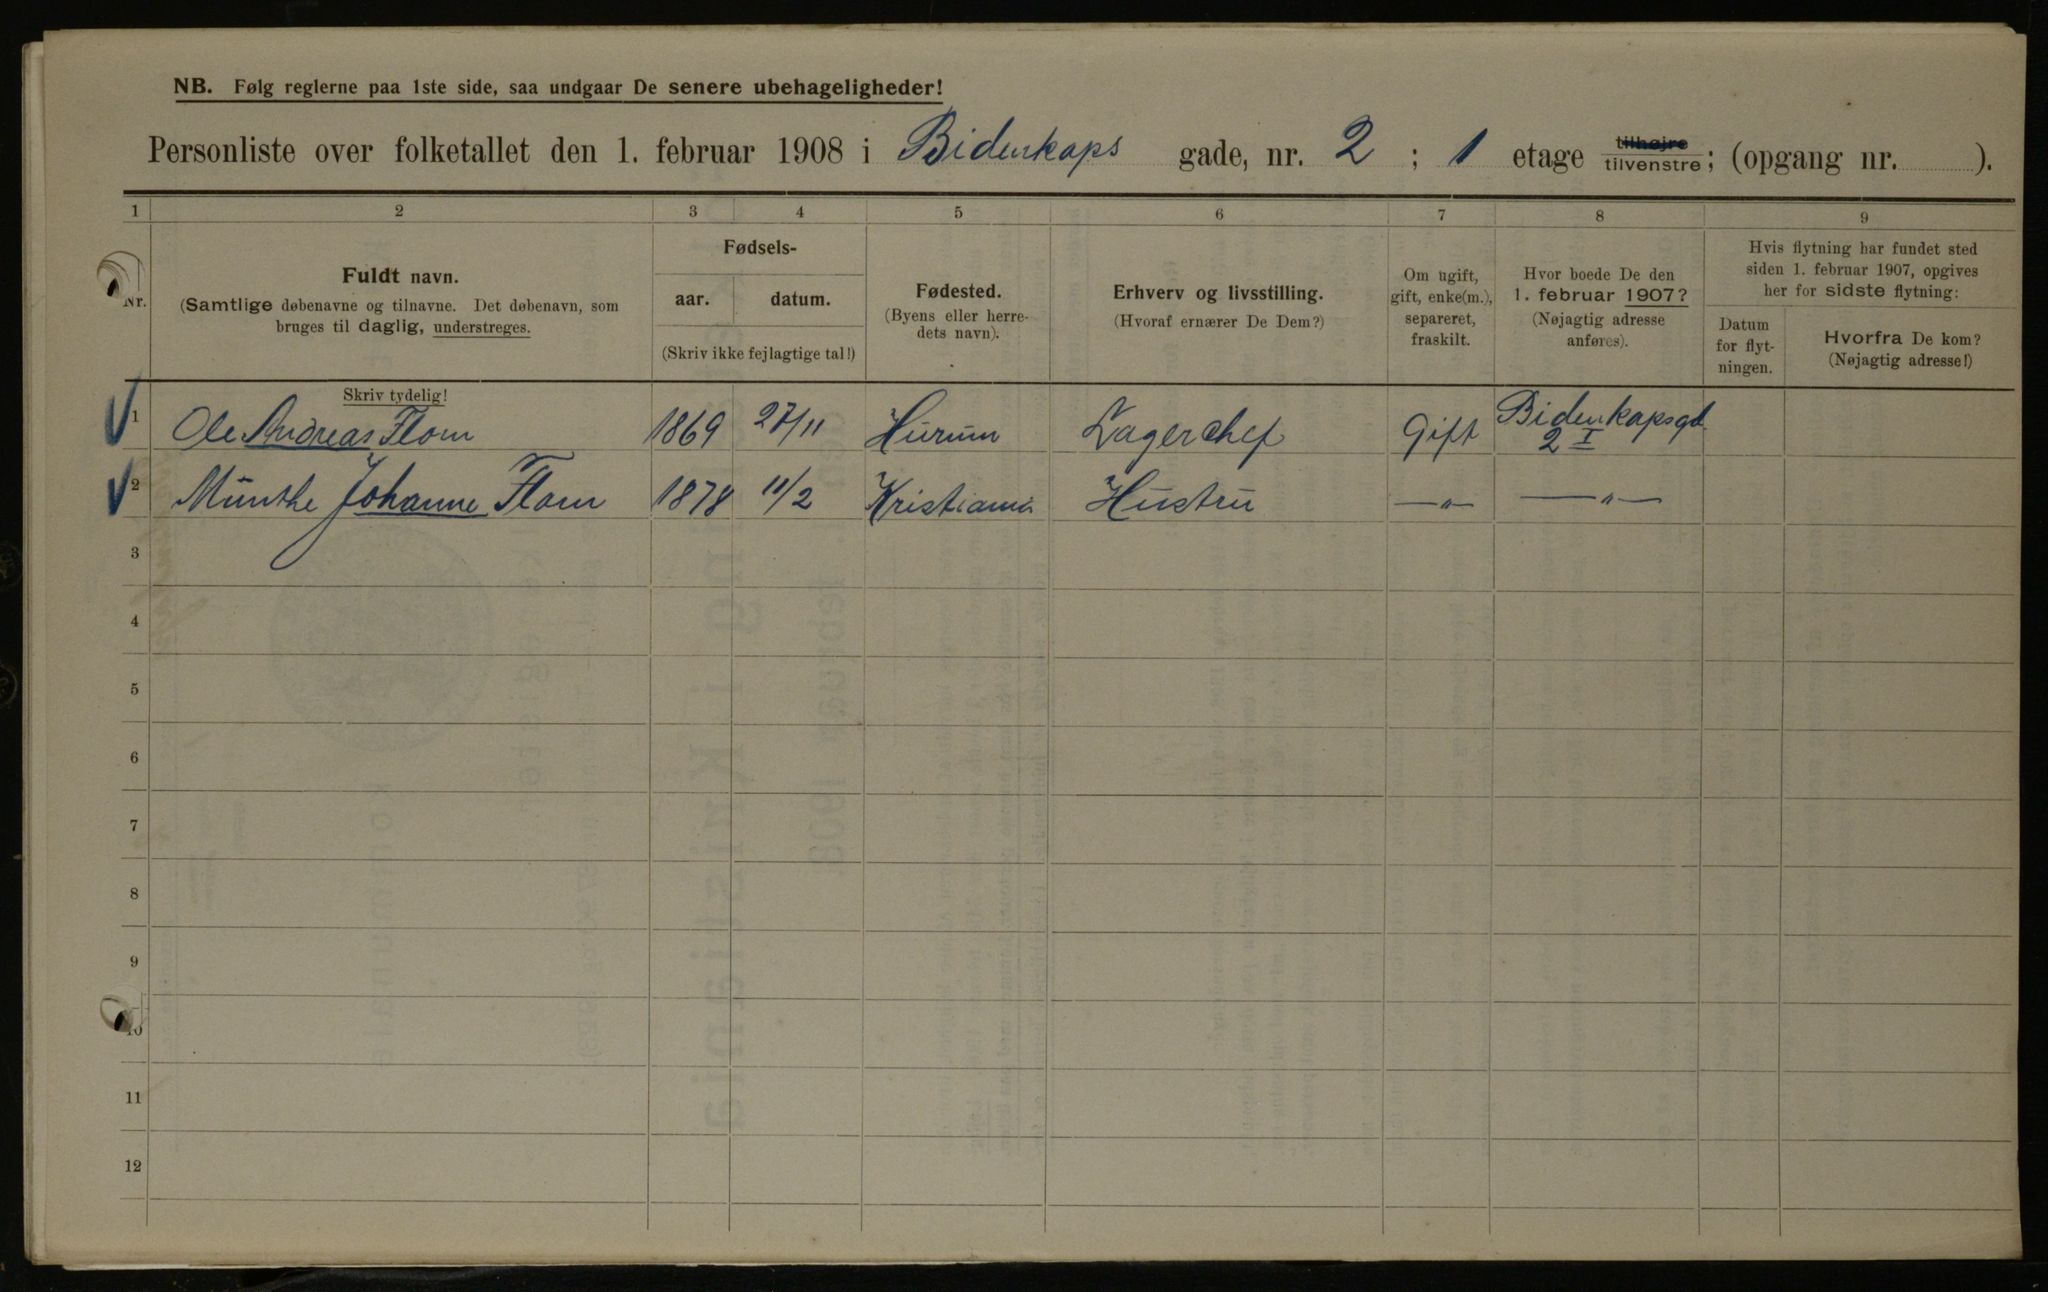 NB. Følg reglerne paa 1ste side, saa undgaar De senere ubehageligheder!
Personliste over folketallet den 1. februar 1908 i Bidenkaps gade, nr. 2 ; 1 etage tilhøjre tilvenstre; (opgang nr. ).
1 2 3 4 5 6 7 8 9
Nr.
Fuldt navn.
(Samtlige døbenavne og tilnavne. Det døbenavn, som
bruges til daglig, understreges.
Skriv tydelig!
Fødsels-
aar. datum.
(Skriv ikke fejlagtige tal!)
Fødested.
(Byens eller herre-
dets navn).
Erhverv og livsstilling.
(Hvoraf ernærer De Dem?)
Om ugift,
gift, enke(m.),
separeret,
fraskilt.
Hvor boede De den
1. februar 1907?
(Nøjagtig adresse
anføres).
Hvis flytning har fundet sted
siden 1. februar 1907, opgives
her for sidste flytning:
Datum
for flyt-
ningen.
Hvorfra De kom?
(Nøjagtig adresse!)
1 Ole Andreas Flom 1869 27/11 Hurum Lagerchef Gift Bidenkapsgd.
2 I
2 Munthe Johanne Flom 1878 11/2 Kristiania Hustru —〃— —〃—
3
4
5
6
7
8
9
10
11
12